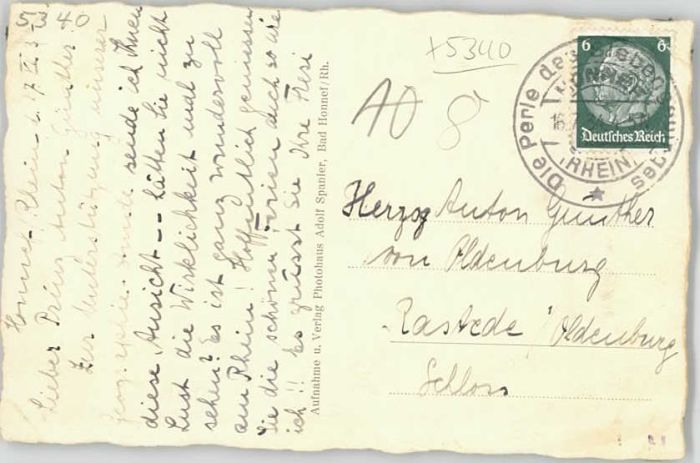 5340
Honnef Rhein d. 17.
Lieber Prinz Anton Günther!
Zur Unterstützung unserer
sende ich Ihnen
diese Ansicht -- hätten Sie nicht
Lust die Wirklichkeit mal zu
sehen? Es ist ganz wundervoll
am Rhein! Hoffentlich geniessen
Sie die schönen Ferien auch so wie
ich!! Es grüsst Sie Ihre
Aufnahme u. Verlag Photohaus Adolf Spanier, Bad Honnef/Rh.
x5340
8
6 6
Deutsches Reich
Die Perle des Siebengebirges
HONNEF
(RHEIN)
Herzog Anton Günther
von Oldenburg
Rastede / Oldenburg
Schloss